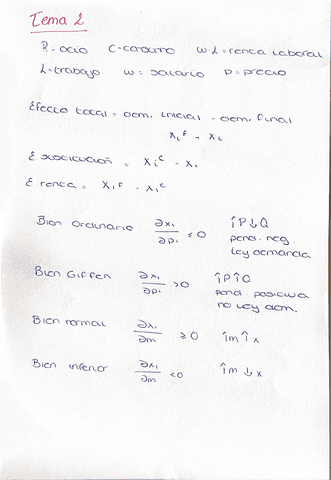 Tema 2
R = ocio C = consumo w L = renta laboral
L = trabajo w = salario p = precio
Efecto total = dem. inicial - dem. final
xᵢᶠ - xᵢ
E. sustitución = xᵢᶜ - xᵢ
E. renta = xᵢᶠ - xᵢᶜ
Bien Ordinario ∂xᵢ/∂pᵢ ≤ 0 ↑P↓Q
pend. neg.
ley demanda
Bien Giffen ∂xᵢ/∂pᵢ > 0 ↑P↑Q
pend. positiva
no ley dem.
Bien normal ∂xᵢ/∂m ≥ 0 ↑m↑x
Bien inferior ∂xᵢ/∂m < 0 ↑m↓x